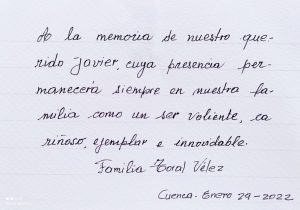 A la memoria de nuestro que-
rido Javier, cuya presencia per-
manecerá siempre en nuestra fa-
milia como un ser valiente, ca
riñoso, ejemplar e innovidable.
Familia Toral Vélez
Cuenca. Enero 29-2022